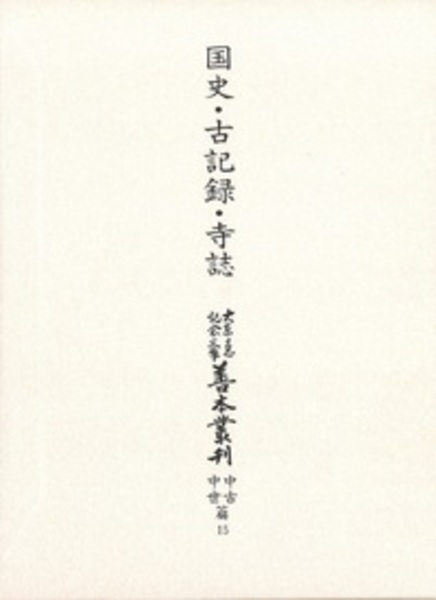 国史・古記録・寺誌
大東急記念文庫
善本叢刊
中古
中世
篇
15